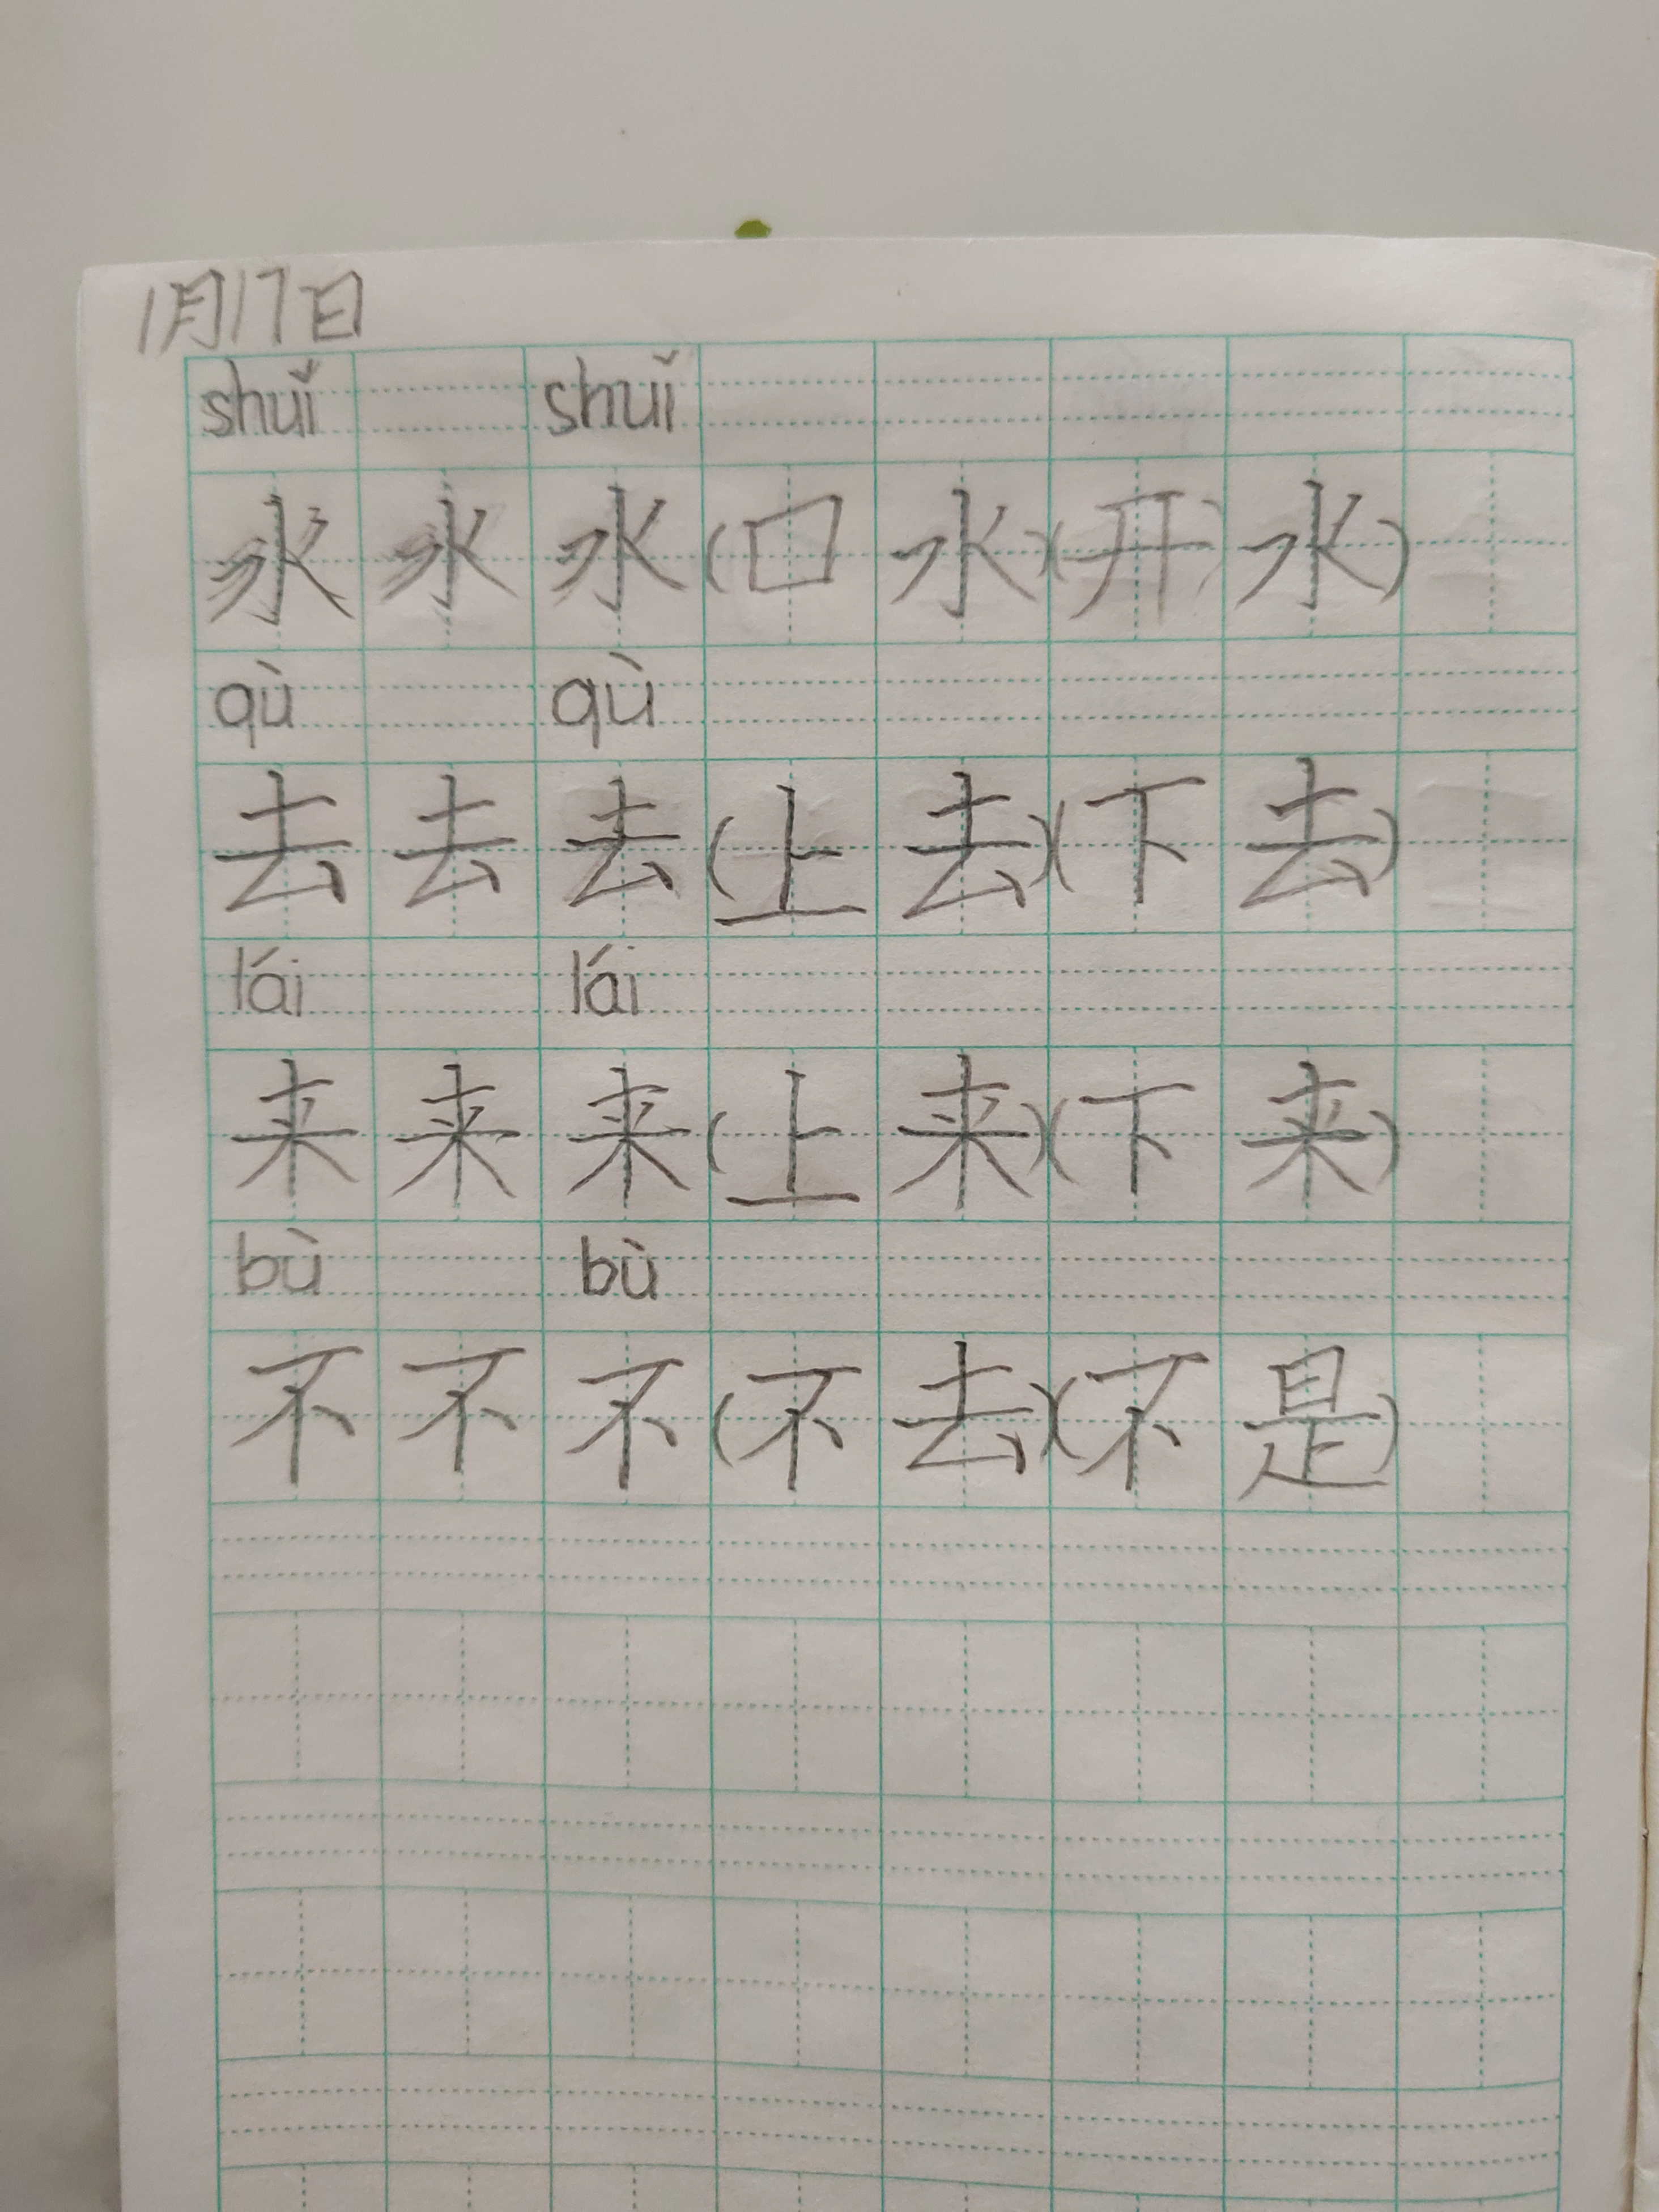 1月17日
shuǐ shuǐ
水 水 水 (口 水) (开 水)
qù qù
去 去 去 (上 去) (下 去)
lái lái
来 来 来 (上 来) (下 来)
bù bù
不 不 不 (不 去) (不 是)